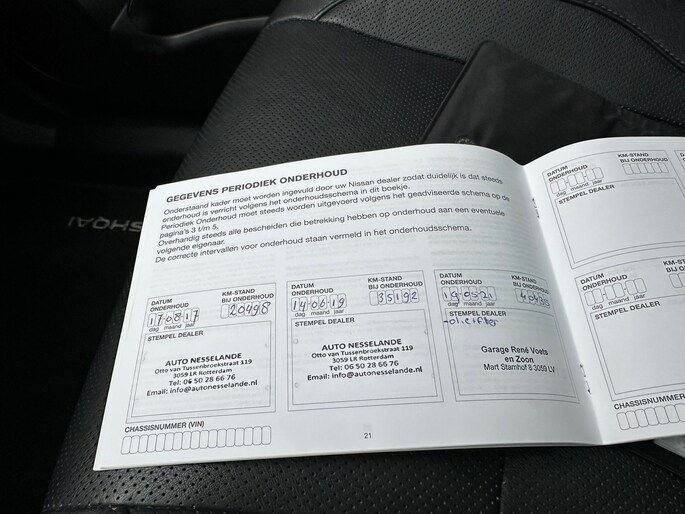 GEGEVENS PERIODIEK ONDERHOUD
Onderstaand kader moet worden ingevuld door uw Nissan dealer zodat duidelijk is dat steeds
onderhoud is verricht volgens het onderhoudsschema in dit boekje.
Periodiek Onderhoud moet steeds worden uitgevoerd volgens het geadviseerde schema op de
pagina's 3 t/m 5.
Overhandig steeds alle bescheiden die betrekking hebben op onderhoud aan een eventuele
volgende eigenaar.
De correcte intervallen voor onderhoud staan vermeld in het onderhoudsschema.
DATUM ONDERHOUD
KM-STAND BIJ ONDERHOUD
170817
20498
dag maand jaar
STEMPEL DEALER
AUTO NESSELANDE
Otto van Tussenbroekstraat 119
3059 LR Rotterdam
Tel: 06 50 28 66 76
Email: info@autonesselande.nl
DATUM ONDERHOUD
KM-STAND BIJ ONDERHOUD
140619
35192
dag maand jaar
STEMPEL DEALER
AUTO NESSELANDE
Otto van Tussenbroekstraat 119
3059 LR Rotterdam
Tel: 06 50 28 66 76
Email: info@autonesselande.nl
DATUM ONDERHOUD
KM-STAND BIJ ONDERHOUD
190521
dag maand jaar
STEMPEL DEALER
Garage René Voets
en Zoon
Mart Stamhof 8 3059 LV
CHASSISNUMMER (VIN)
21
DATUM ONDERHOUD
KM-STAND BIJ ONDERHOUD
dag maand jaar
STEMPEL DEALER
DATUM ONDERHOUD
KM-STAND BIJ ONDERHOUD
dag maand jaar
STEMPEL DEALER
CHASSISNUMMER (VIN)
SHQAI